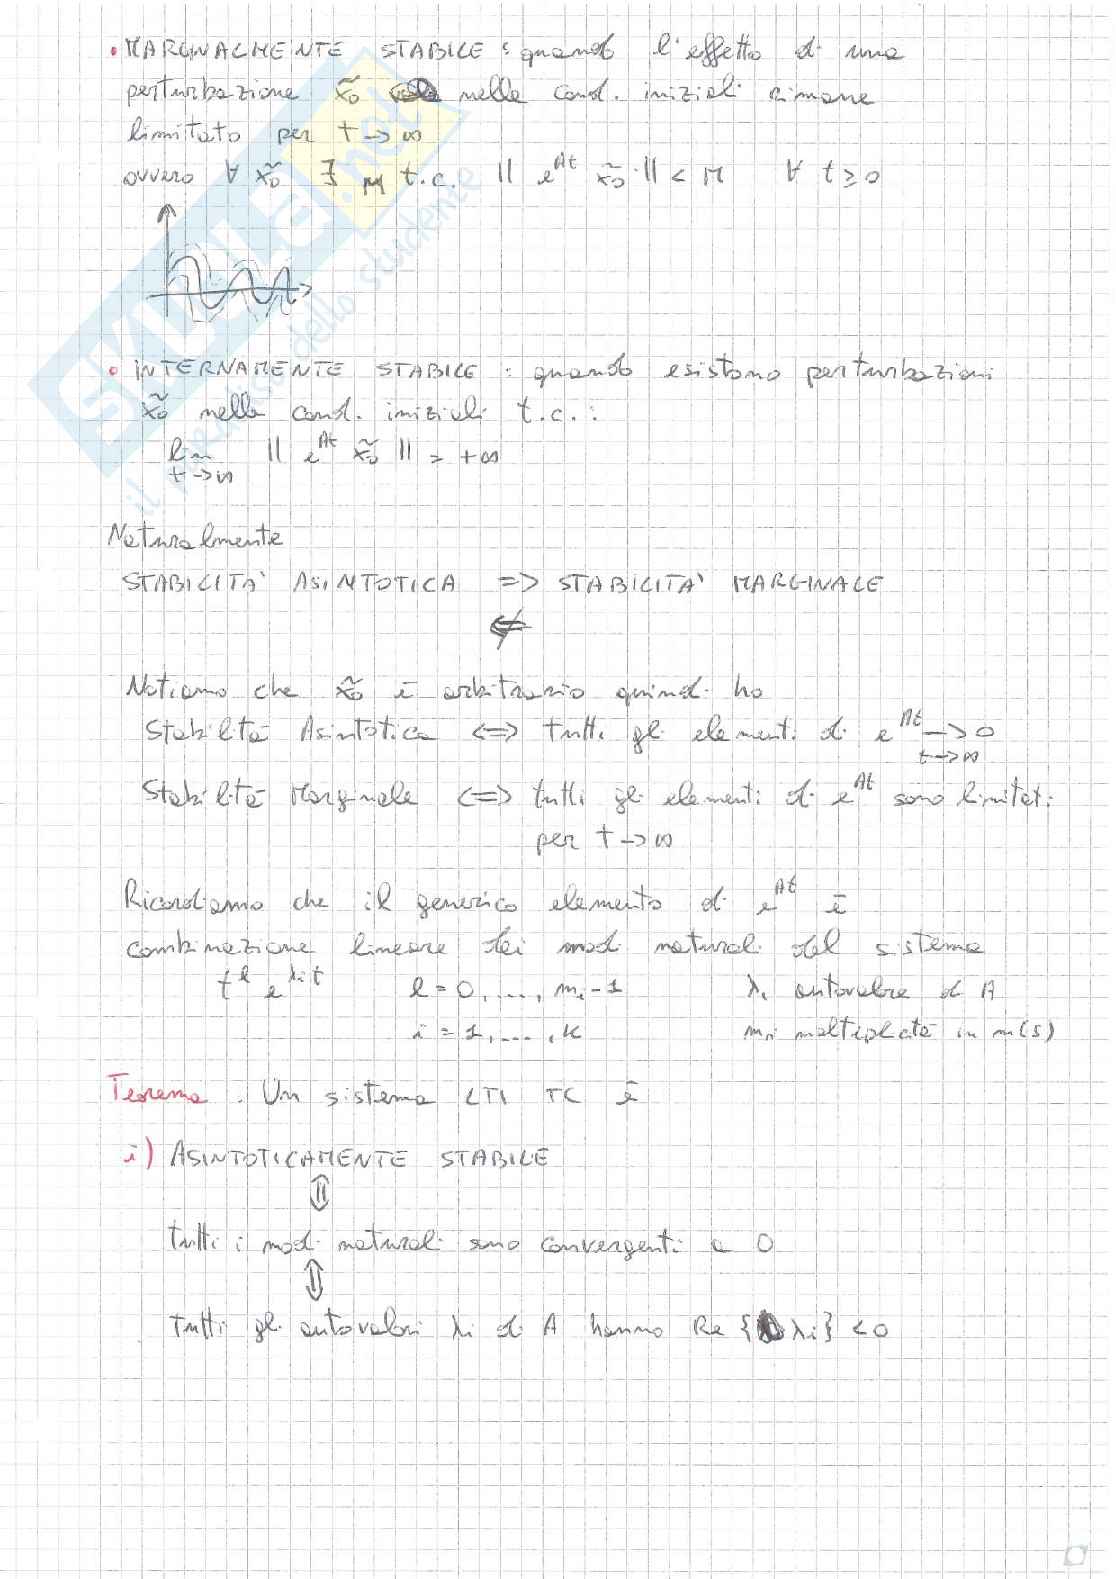 • MARGINALMENTE STABILE : quando l'effetto di una
perturbazione x̃₀ nelle cond. iniziali rimane
limitato per t → ∞
ovvero ∀ x̃₀ ∃ M t.c. || e^{At} x̃₀ || < M ∀ t ≥ 0
• INTERNAMENTE STABILE : quando esistono perturbazioni
x̃₀ nelle cond. iniziali t.c. :
lim t→∞ || e^{At} x̃₀ || = +∞
Naturalmente
STABILITA' ASINTOTICA => STABILITA' MARGINALE
⇍
Notiamo che x̃₀ è arbitrario quindi ho
Stabilità Asintotica <=> tutti gli elementi di e^{At} → 0 t→∞
Stabilità Marginale <=> tutti gli elementi di e^{At} sono limitati
per t → ∞
Ricordiamo che il generico elemento di e^{At} è
combinazione lineare dei modi naturali del sistema
t^l e^{λi t} l = 0, ..., mi - 1 λi autovalore di A
i = 1, ..., k mi molteplicità in m(s)
Teorema . Un sistema LTI TC è
i) ASINTOTICAMENTE STABILE
⇕
tutti i modi naturali sono convergenti a 0
⇕
tutti gli autovalori λi di A hanno Re { λi } < 0
SKUOLA.net
il paradiso dello studente